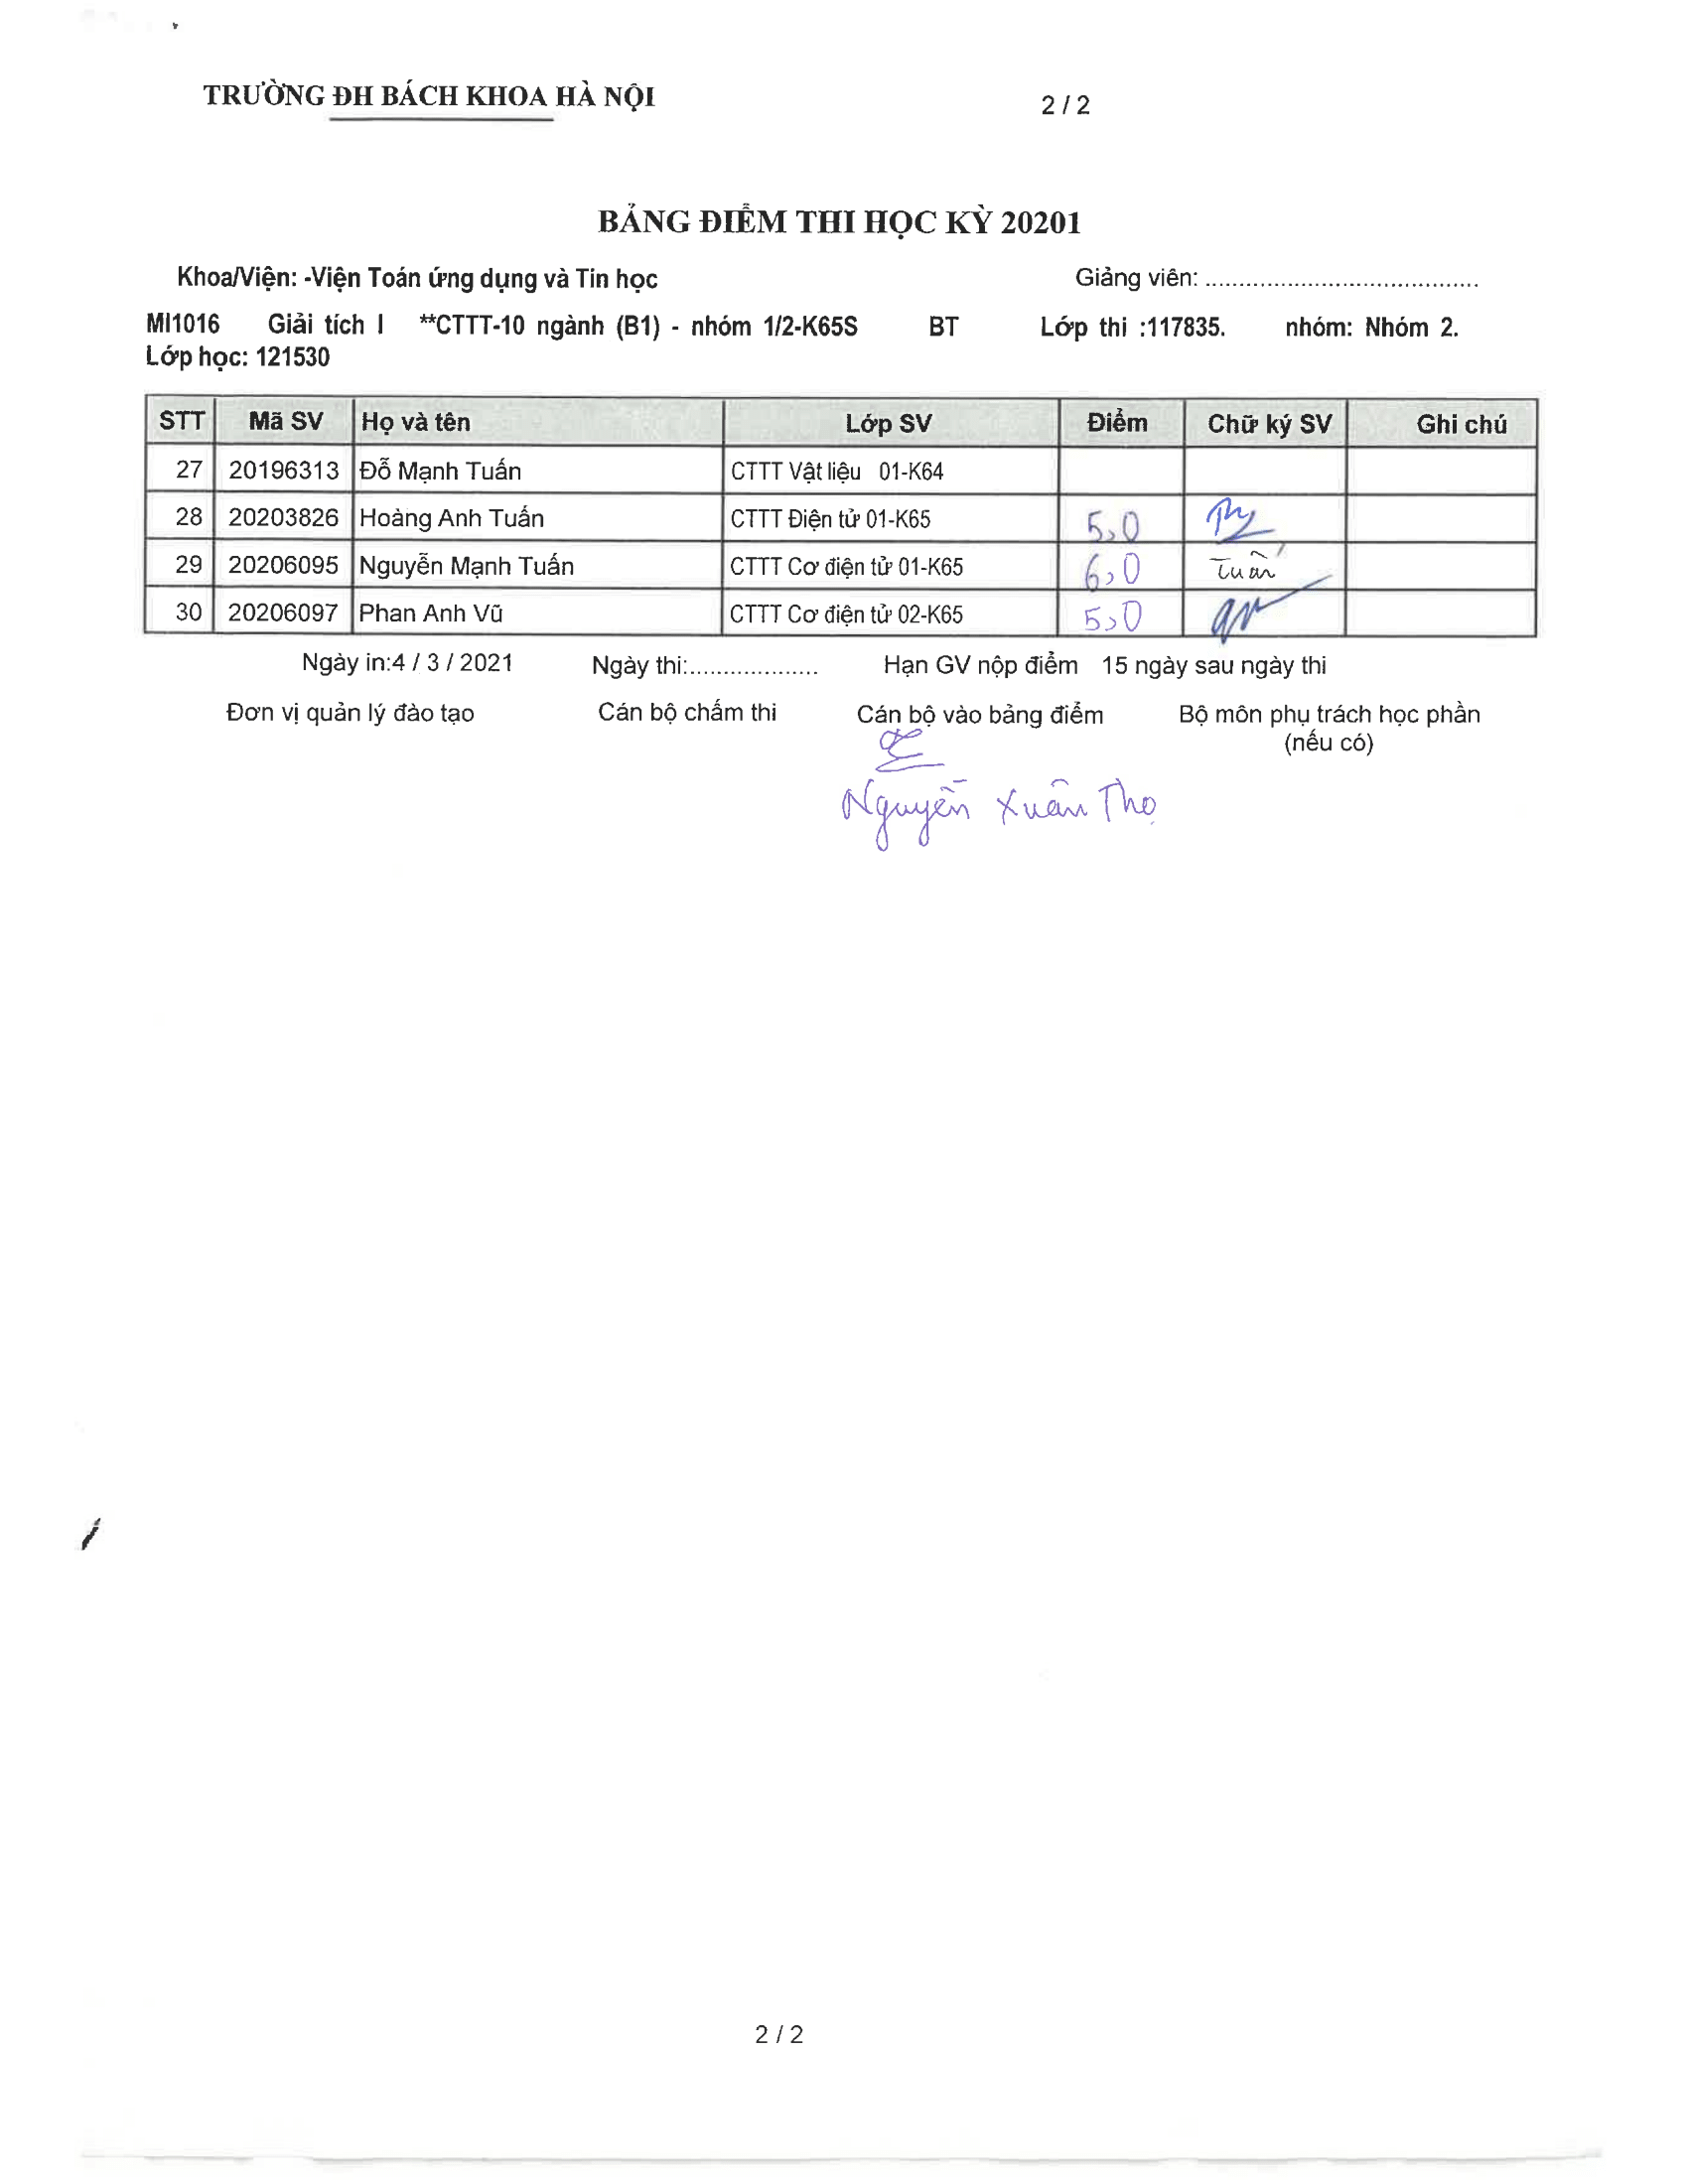 TRƯỜNG ĐH BÁCH KHOA HÀ NỘI 2 / 2
BẢNG ĐIỂM THI HỌC KỲ 20201
Khoa/Viện: -Viện Toán ứng dụng và Tin học Giảng viên: ........................................
MI1016 Giải tích I **CTTT-10 ngành (B1) - nhóm 1/2-K65S BT Lớp thi :117835. nhóm: Nhóm 2.
Lớp học: 121530
STT Mã SV Họ và tên Lớp SV Điểm Chữ ký SV Ghi chú
27 20196313 Đỗ Mạnh Tuấn CTTT Vật liệu 01-K64
28 20203826 Hoàng Anh Tuấn CTTT Điện tử 01-K65 5,0
29 20206095 Nguyễn Mạnh Tuấn CTTT Cơ điện tử 01-K65 6,0 Tuấn
30 20206097 Phan Anh Vũ CTTT Cơ điện tử 02-K65 5,0
Ngày in:4 / 3 / 2021 Ngày thi:................... Hạn GV nộp điểm 15 ngày sau ngày thi
Đơn vị quản lý đào tạo Cán bộ chấm thi Cán bộ vào bảng điểm Bộ môn phụ trách học phần
(nếu có)
Nguyễn Xuân Thọ
2 / 2